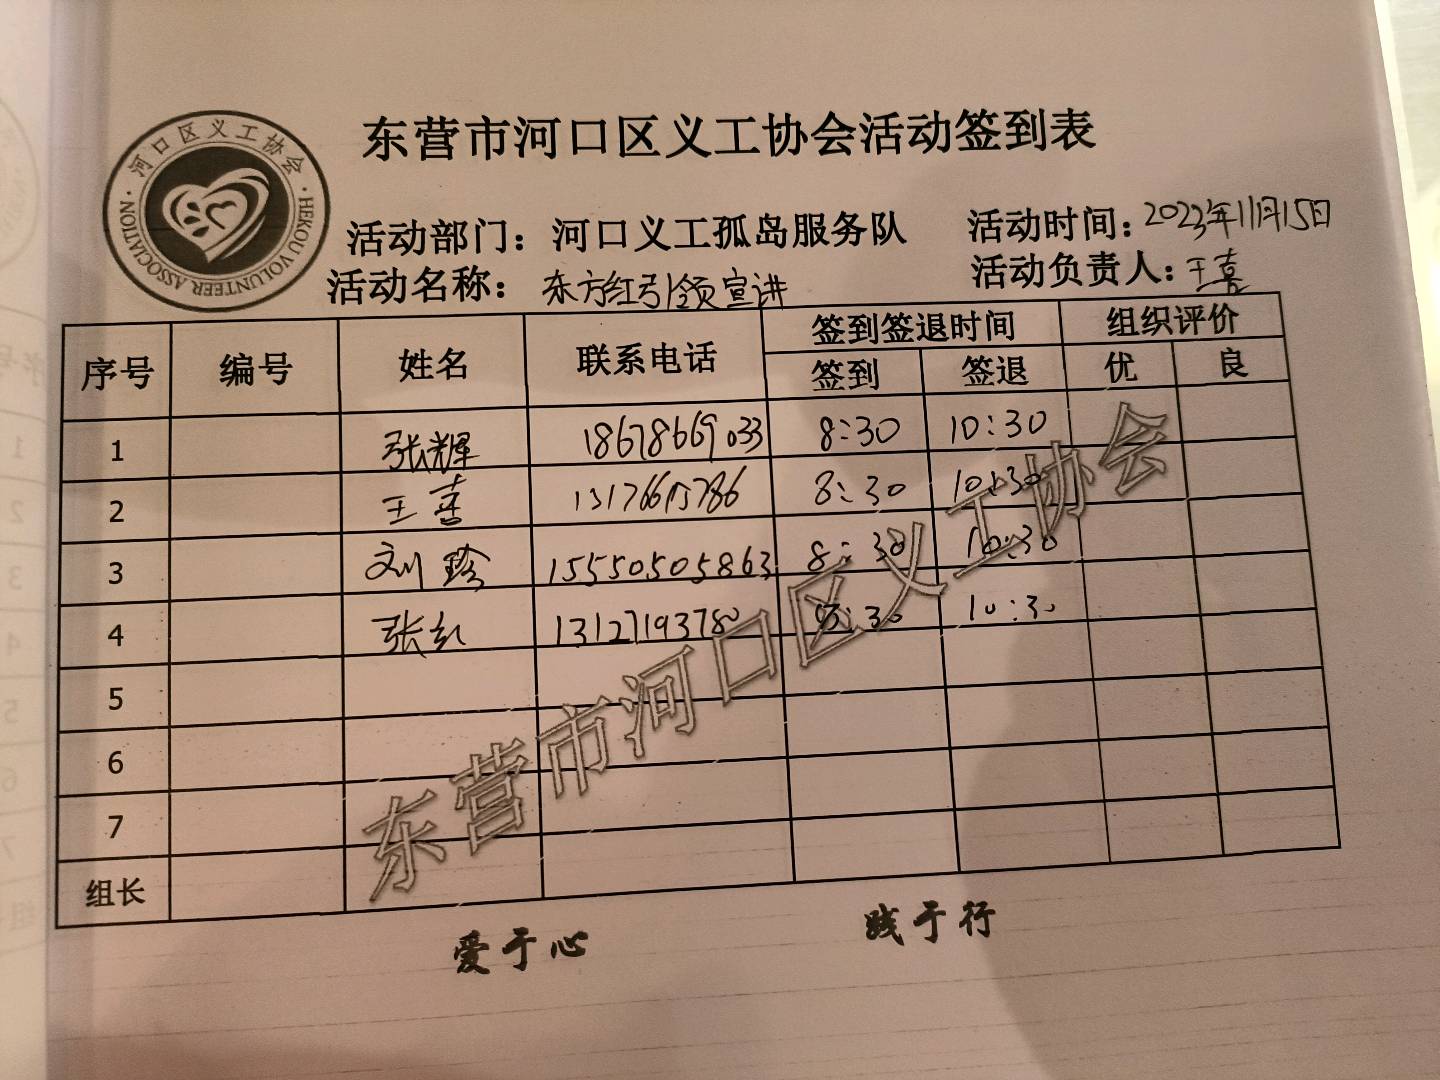 东营市河口区义工协会活动签到表
河口区义工协会
HEKOU VOLUNTEER ASSOCIATION
活动部门：河口义工孤岛服务队 活动时间：2023年11月15日
活动名称：东方红引领宣讲 活动负责人：王喜
序号 编号 姓名 联系电话 签到签退时间 组织评价
签到 签退 优 良
1 张辉 18678669033 8:30 10:30
2 王喜 8:30 10:30
3 刘珍 15550505863 8:30 10:30
4 张红 13127193780 8:30 10:30
5
6
7
组长
东营市河口区义工协会
爱于心 践于行